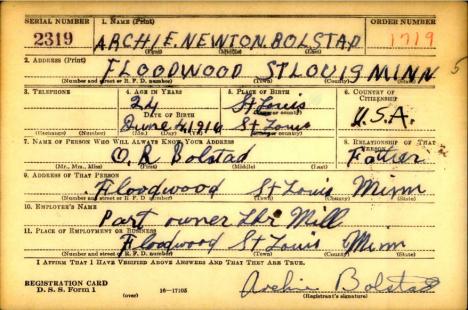 SERIAL NUMBER 1. NAME (Print) ORDER NUMBER
2319 ARCHIE. NEWTON. BOLSTAD 1719
(First) (Middle) (Last)
2. ADDRESS (Print)
FLOODWOOD ST LOUIS MINN 5
(Number and street or R. F. D. number) (Town) (County) (State)
3. TELEPHONE 4. AGE IN YEARS 5. PLACE OF BIRTH 6. COUNTRY OF CITIZENSHIP
24 St Louis
DATE OF BIRTH (Town or county)
June 4, 1916 St Louis U.S.A.
(Exchange) (Number) (Mo.) (Day) (Yr.) (State or country)
7. NAME OF PERSON WHO WILL ALWAYS KNOW YOUR ADDRESS 8. RELATIONSHIP OF THAT PERSON
O. R Bolstad Father
(Mr., Mrs., Miss) (First) (Middle) (Last)
9. ADDRESS OF THAT PERSON
Floodwood St Louis Minn
(Number and street or R. F. D. number) (Town) (County) (State)
10. EMPLOYER'S NAME
Part owner Lbr Mill
11. PLACE OF EMPLOYMENT OR BUSINESS
Floodwood St Louis Minn
(Number and street or R. F. D. number) (Town) (County) (State)
I AFFIRM THAT I HAVE VERIFIED ABOVE ANSWERS AND THAT THEY ARE TRUE.
Archie Bolstad
REGISTRATION CARD
D. S. S. Form 1 (over) 16—17105 (Registrant's signature)